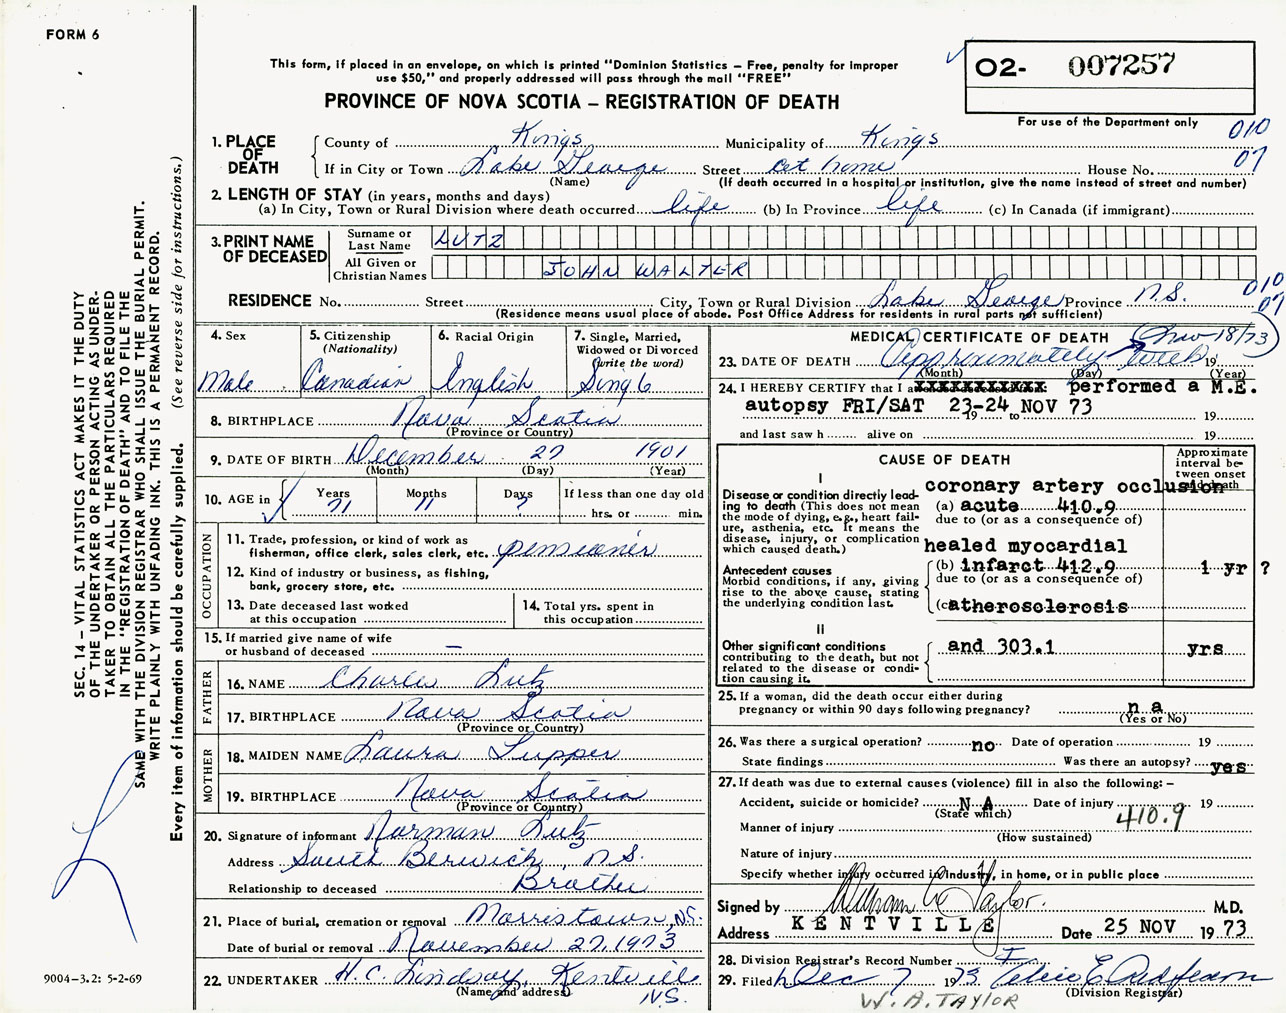 FORM 6
This form, if placed in an envelope, on which is printed "Dominion Statistics – Free, penalty for improper
use $50," and properly addressed will pass through the mail "FREE"
PROVINCE OF NOVA SCOTIA – REGISTRATION OF DEATH
02- 007257
For use of the Department only
010
07
1. PLACE OF DEATH
County of Kings Municipality of Kings
If in City or Town Lake George Street at home House No.
(Name) (If death occurred in a hospital or institution, give the name instead of street and number)
2. LENGTH OF STAY (in years, months and days)
(a) In City, Town or Rural Division where death occurred life (b) In Province life (c) In Canada (if immigrant)
3. PRINT NAME OF DECEASED
Surname or Last Name LUTZ
All Given or Christian Names JOHN WALTER
RESIDENCE No. Street City, Town or Rural Division Lake George Province N.S.
010
07
(Residence means usual place of abode. Post Office Address for residents in rural parts not sufficient)
4. Sex
Male
5. Citizenship
(Nationality)
Canadian
6. Racial Origin
English
7. Single, Married,
Widowed or Divorced
(write the word)
Single
8. BIRTHPLACE Nova Scotia
(Province or Country)
9. DATE OF BIRTH December 27 1901
(Month) (Day) (Year)
10. AGE in Years Months Days If less than one day old
71 11 ? hrs. or min.
OCCUPATION
11. Trade, profession, or kind of work as
fisherman, office clerk, sales clerk, etc. pensioner
12. Kind of industry or business, as fishing,
bank, grocery store, etc.
13. Date deceased last worked
at this occupation
14. Total yrs. spent in
this occupation
15. If married give name of wife
or husband of deceased –
FATHER
16. NAME Charles Lutz
17. BIRTHPLACE Nova Scotia
(Province or Country)
MOTHER
18. MAIDEN NAME Laura Tupper
19. BIRTHPLACE Nova Scotia
(Province or Country)
20. Signature of informant Norman Lutz
Address South Berwick, N.S.
Relationship to deceased Brother
21. Place of burial, cremation or removal Morristown, N.S.
Date of burial or removal November 27, 1973
22. UNDERTAKER H.C. Lindsay, Kentville
N.S.
(Name and address)
MEDICAL CERTIFICATE OF DEATH
(Nov 18/73)
23. DATE OF DEATH Approximately 19
(Month) (Day) (Year)
24. I HEREBY CERTIFY that I performed a M.E.
autopsy FRI/SAT 23-24 NOV 73
19 to 19
and last saw h alive on 19
CAUSE OF DEATH
Approximate
interval be-
tween onset
and death
I
Disease or condition directly lead-
ing to death (This does not mean
the mode of dying, e.g., heart fail-
ure, asthenia, etc. It means the
disease, injury, or complication
which caused death.)
coronary artery occlusion
(a) acute 410.9
due to (or as a consequence of)
healed myocardial
Antecedent causes
Morbid conditions, if any, giving
rise to the above cause, stating
the underlying condition last.
(b) infarct 412.9 1 yr ?
due to (or as a consequence of)
(c) atherosclerosis
II
Other significant conditions
contributing to the death, but not
related to the disease or condi-
tion causing it.
and 303.1 yrs
25. If a woman, did the death occur either during
pregnancy or within 90 days following pregnancy? n a
(Yes or No)
26. Was there a surgical operation? no Date of operation 19
State findings Was there an autopsy? yes
27. If death was due to external causes (violence) fill in also the following: –
Accident, suicide or homicide? N A Date of injury 19
(State which)
410.9
Manner of injury
(How sustained)
Nature of injury
Specify whether injury occurred in industry, in home, or in public place
Signed by William A Taylor. M.D.
Address KENTVILLE Date 25 NOV 1973
28. Division Registrar's Record Number
29. Filed Dec 7 1973
(Division Registrar)
W. A. TAYLOR
SEC. 14 – VITAL STATISTICS ACT MAKES IT THE DUTY
OF THE UNDERTAKER OR PERSON ACTING AS UNDER-
TAKER TO OBTAIN ALL THE PARTICULARS REQUIRED
IN THE "REGISTRATION OF DEATH" AND TO FILE THE
SAME WITH THE DIVISION REGISTRAR WHO SHALL ISSUE THE BURIAL PERMIT.
WRITE PLAINLY WITH UNFADING INK. THIS IS A PERMANENT RECORD.
Every item of information should be carefully supplied. (See reverse side for instructions.)
9004–3.2: 5-2-69